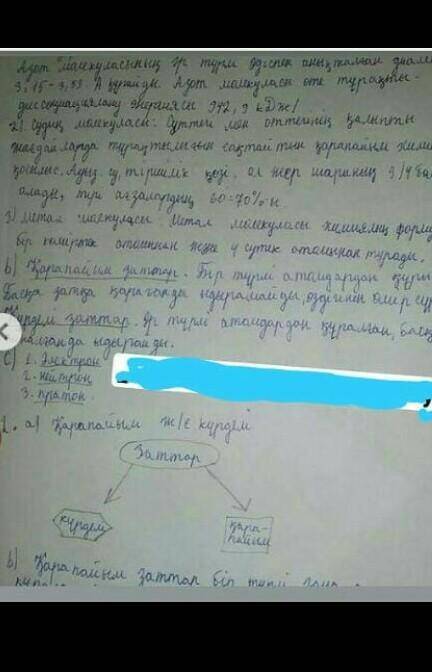 Азот Молекуласының әр түрлі әдіспен анықталған диаме
3,15-3,53 А құрайды. Азот молекуласы өте тұрақты-
диссоциациялану энергиясы 942,9 кДж/
2) Судың молекуласы: Сутегі мен оттегінің қалыпты
жағдайларда тұрақтылығын сақтайтын қарапайым хими
қосылыс. су, тіршілік көзі, ол жер шарының 3/4 ба
алады, тірі ағзалардың 60-70%-ы.
3) Метан молекуласы: Метан молекуласы химиялық форму
бір көміртек атомынан және 4 сутек атомынан тұрады.
b) Қарапайым заттар. Бір түрлі атомдардан құры
Басқа затқа қарағанда ыдырамайды, өмір сүр
Күрделі заттар. Әр түрлі атомдардан құралған, басқ
ыдырайды.
c) 1. Электрон
2. нейтрон
3. протон.
1. a) Қарапайым ж/е күрделі
Заттар
күрделі
Қара-
пайым
b) Қарапайым заттар бір түрлі